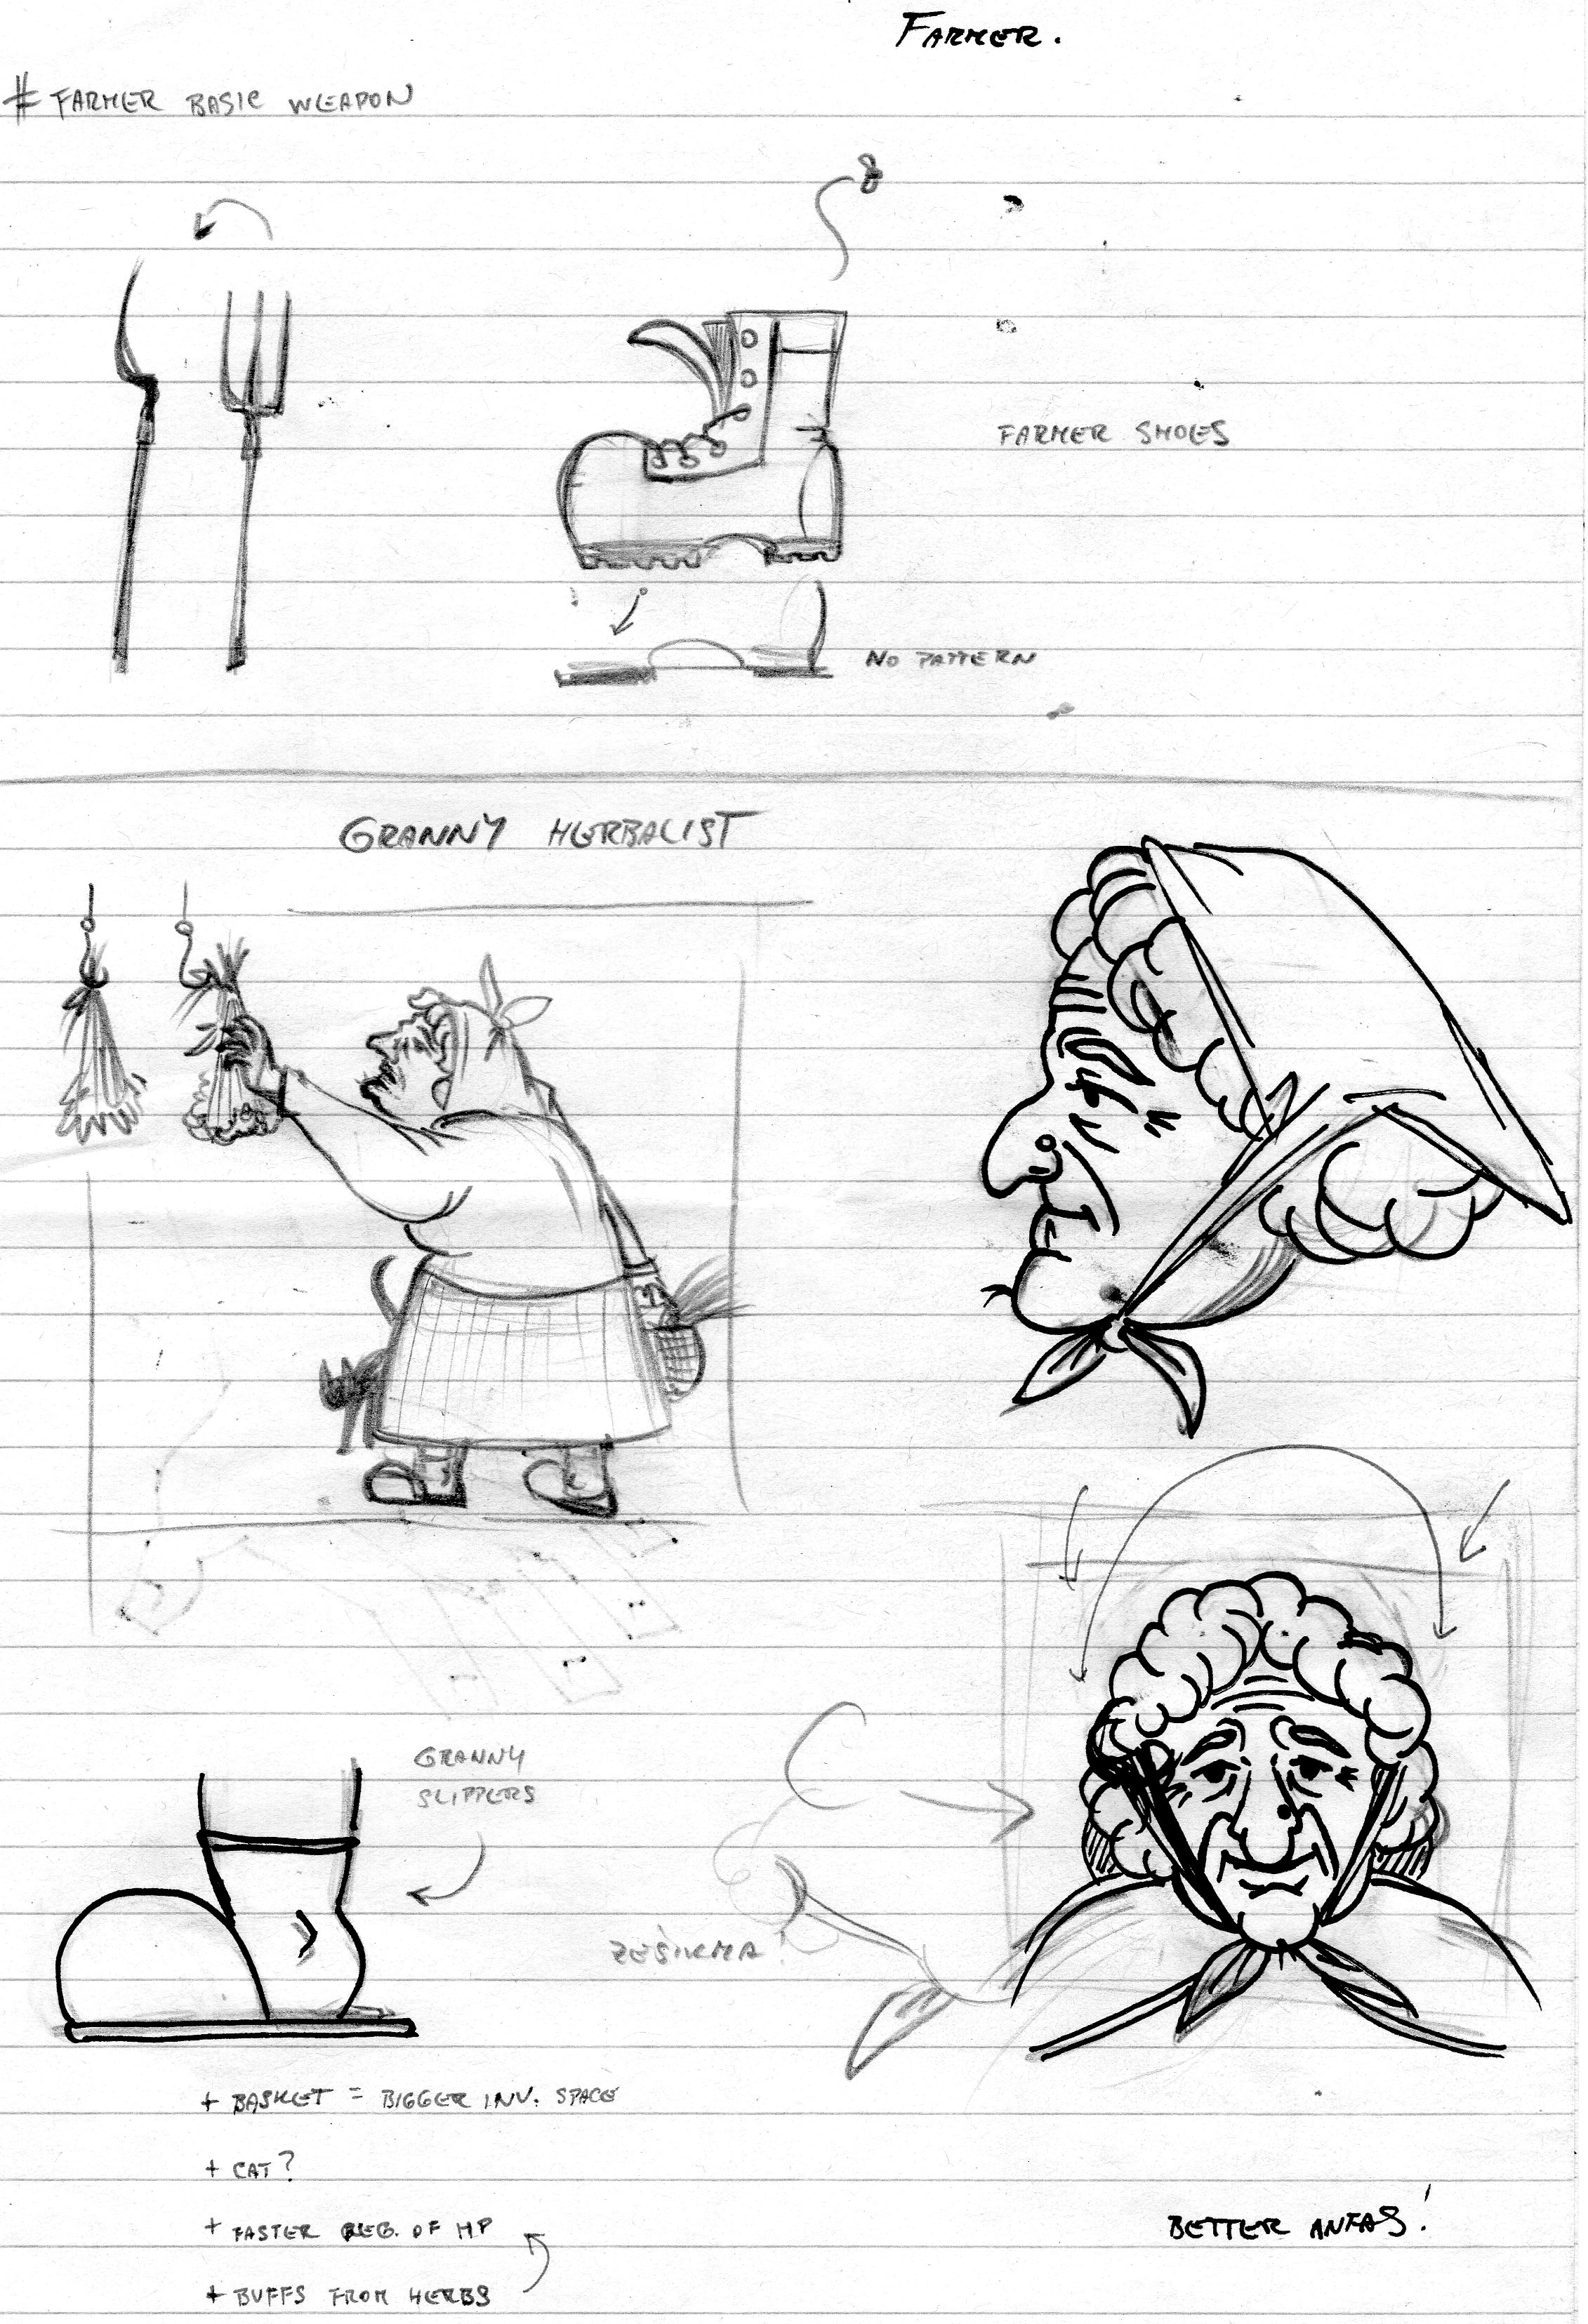 FARMER.
# FARMER BASIC WEAPON
FARMER SHOES
NO PATTERN
GRANNY HERBALIST
GRANNY
SLIPPERS
+ BASKET = BIGGER INV. SPACE
+ CAT?
+ FASTER REG. OF HP
+ BUFFS FROM HERBS
BETTER ANFAS!